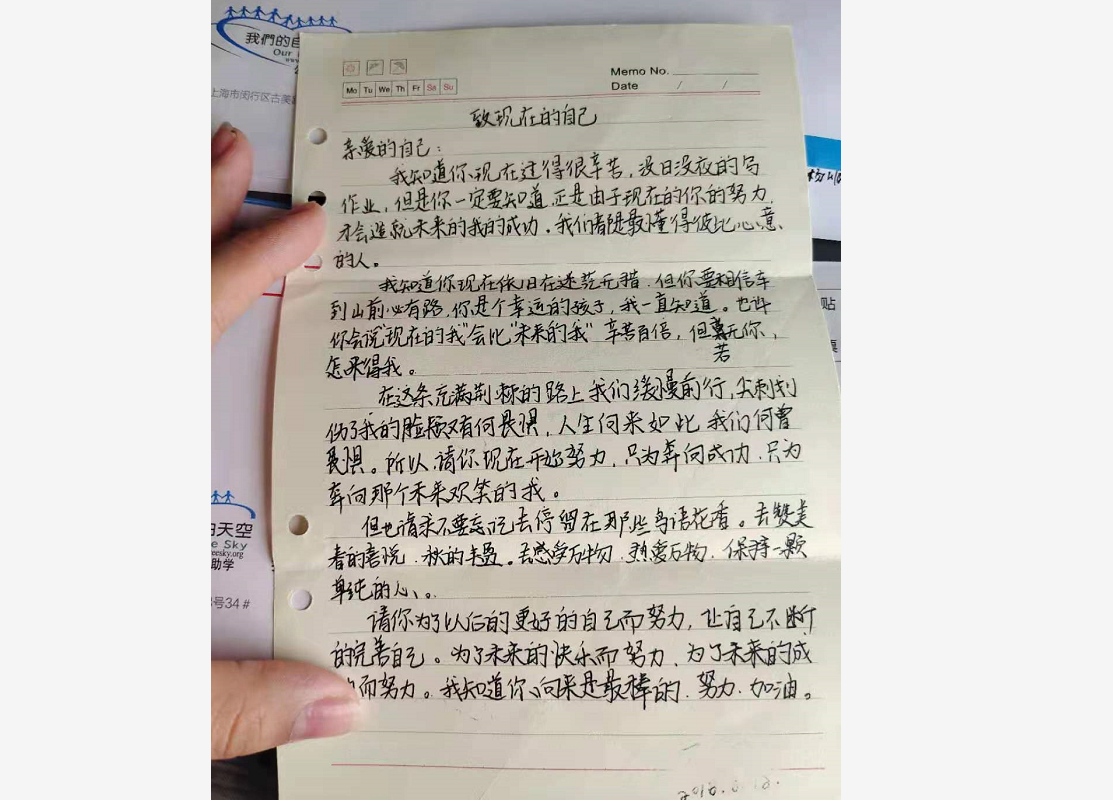 我們的自
Our
上海市闵行区古美
Memo No.
Date / /
Mo Tu We Th Fr Sa Su
致现在的自己
亲爱的自己：
我知道你现在过得很辛苦，没日没夜的写
作业，但是你一定要知道，正是由于现在的你的努力，
才会造就未来的我的成功。我们都是最懂得彼此心意
的人。
我知道你现在依旧在迷茫无措，但你要相信车
到山前必有路，你是个幸运的孩子，我一直知道。也许
你会说"现在的我"会比"未来的我"辛苦百倍，但无你，
若
怎来得我。
在这条充满荆棘的路上我们缓慢前行，尖刺划
伤了我的脸颊又有何畏惧，人生向来如此，我们何曾
畏惧。所以，请你现在开始努力，只为奔向成功，只为
奔向那个未来欢笑的我。
但也请求不要忘记去停留在那些鸟语花香。去赞美
春的喜悦，秋的丰盈。去感受万物，热爱万物，保持一颗
单纯的心、。
请你为了以后的更好的自己而努力，让自己不断
的完善自己。为了未来的快乐而努力，为了未来的成
而努力。我知道你，向来是最棒的，努力，加油。
天空
e Sky
eesky.org
助学
号34#
贴